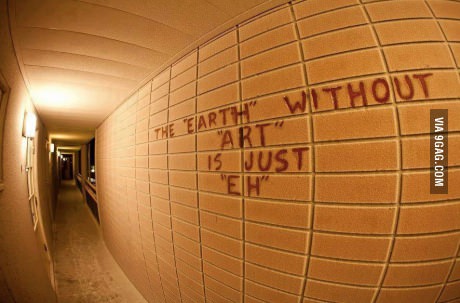 THE "EARTH" WITHOUT
"ART"
IS JUST
"EH"
VIA 9GAG.COM